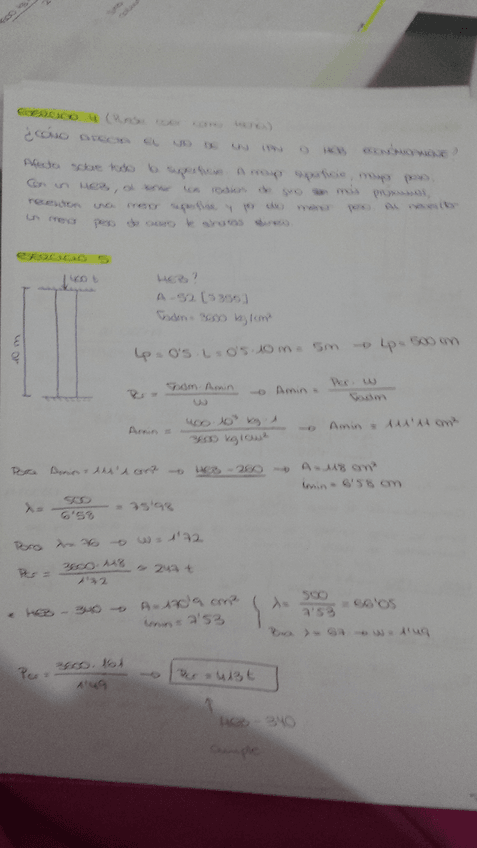 EJERCICIO 4 (Puede caer como teoría)
¿CÓMO AFECTA EL USO DE UN IPN O HEB ECONÓMICAMENTE?
Afecta sobre todo la superficie. A mayor superficie, mayor peso.
Con un HEB, al tener los radios de giro más
necesitan una menor superficie y por ello menor peso. Al necesitar
un menor peso de acero
EJERCICIO 5
400 t
10 m
HEB?
A-52 [ ]
σadm = 3600 kg/cm²
Lp = 0'5 · L = 0'5 · 10 m = 5m → Lp = 500 cm
Pcr = σadm · Amin / W → Amin = Pcr · W / σadm
Amin = 400 · 10³ kg · 1 / 3600 kg/cm² → Amin = 111'11 cm²
Para Amin = 111'1 cm² → HEB - 260 → A = 118 cm²
imin = 6'58 cm
λ = 500 / 6'58 = 75'98
Para λ = 76 → W = 1'72
Pcr = 3600 · 118 / 1'72 = 247 t
* HEB - 340 → A = 170'9 cm²
imin = 7'53
λ = 500 / 7'53 = 66'05
Para λ = 67 → W = 1'49
Pcr = 3600 · 161 / 1'49 → Pcr = 413 t
↑
HEB - 340
Cumple